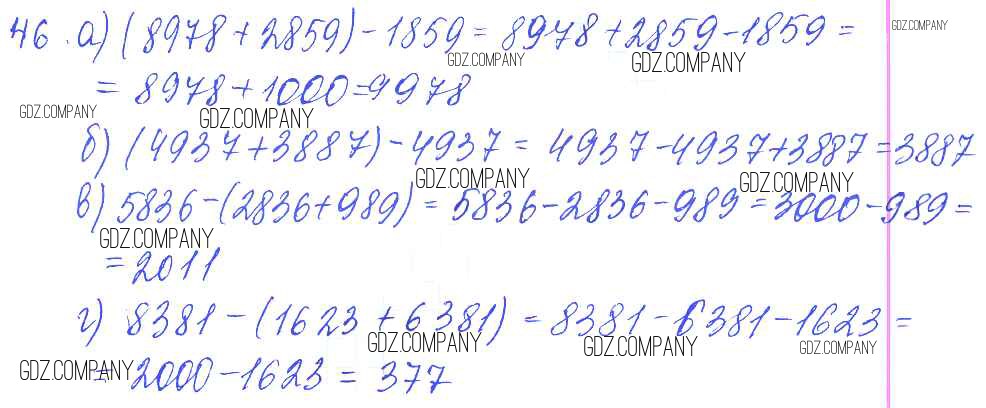 46. а) (8978 + 2859) - 1859 = 8978 + 2859 - 1859 =
GDZ.COMPANY
GDZ.COMPANY
GDZ.COMPANY
= 8978 + 1000 = 9978
GDZ.COMPANY
GDZ.COMPANY
б) (4937 + 3887) - 4937 = 4937 - 4937 + 3887 = 3887
GDZ.COMPANY
GDZ.COMPANY
в) 5836 - (2836 + 989) = 5836 - 2836 - 989 = 3000 - 989 =
GDZ.COMPANY
= 2011
г) 8381 - (1623 + 6381) = 8381 - 6381 - 1623 =
GDZ.COMPANY
GDZ.COMPANY
GDZ.COMPANY
GDZ.COMPANY
= 2000 - 1623 = 377